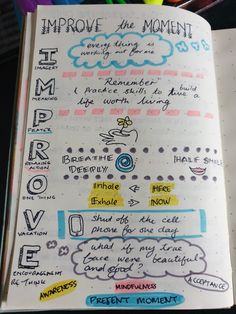 IMPROVE the MOMENT
everything is
working out for me
I
IMAGERY
"Remember"
M
MEANING
I practice skills to build
a
life worth living
P
PRAYER
R
RELAXING
ACTION
BREATHE
DEEPLY
HALF SMILE
O
ONE THING
Inhale HERE
Exhale NOW
V
VACATION
Shut off the cell
phone for one day
E
ENCOURAGEMENT
RE THINK
what if my true
face were beautiful
and good?
ACCEPTANCE
AWARENESS
MINDFULNESS
PRESENT MOMENT